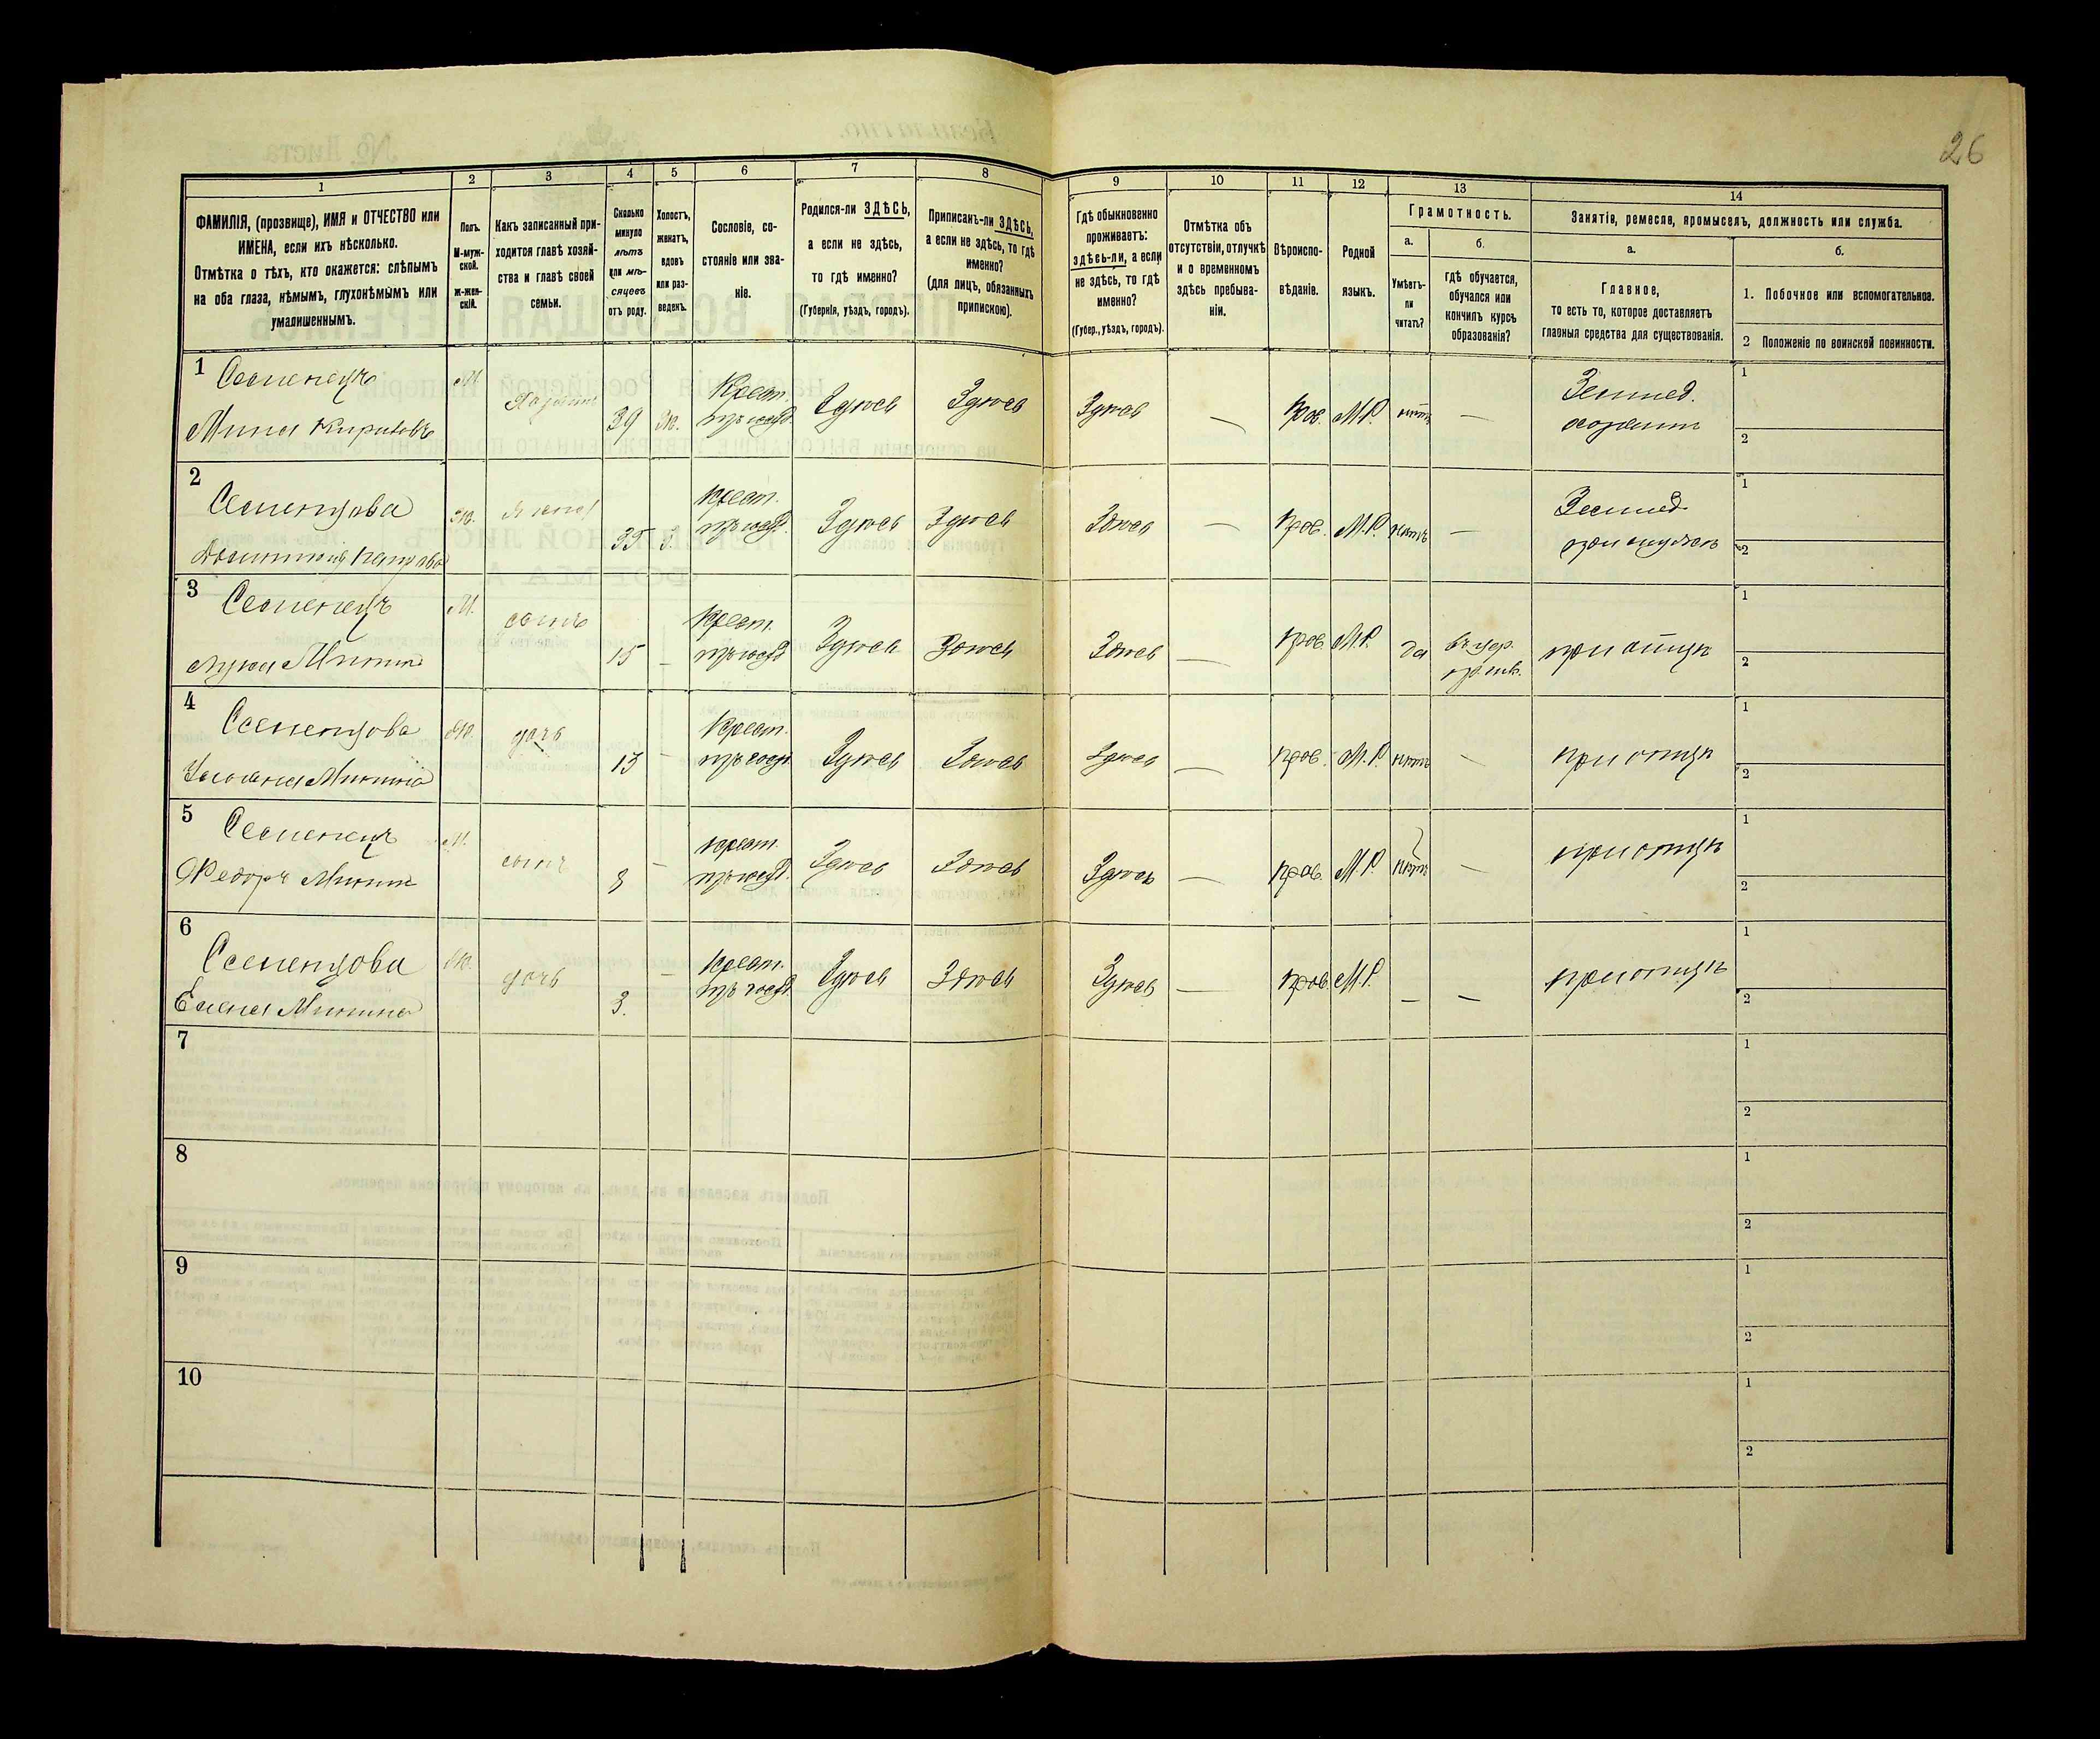 26
1
2
3
4
5
6
7
8
9
10
11
12
13
14
ФАМИЛІЯ, (прозвище), ИМЯ и ОТЧЕСТВО или
ИМЕНА, если ихъ нѣсколько.
Отмѣтка о тѣхъ, кто окажется: слѣпымъ
на оба глаза, нѣмымъ, глухонѣмымъ или
умалишеннымъ.
Полъ.
М-муж-
ской.
ж-жен-
скій.
Какъ записанный при-
ходится главѣ хозяй-
ства и главѣ своей
семьи.
Сколько
минуло
лѣтъ
или мѣ-
сяцевъ
отъ роду.
Холостъ,
женатъ,
вдовъ
или раз-
веденъ.
Сословіе, со-
стояніе или зва-
ніе.
Родился-ли ЗДѢСЬ,
а если не здѣсь,
то гдѣ именно?
(Губернія, уѣздъ, городъ).
Приписанъ-ли ЗДѢСЬ,
а если не здѣсь, то гдѣ
именно?
(для лицъ, обязанныхъ
припискою).
Гдѣ обыкновенно
проживаетъ:
здѣсь-ли, а если
не здѣсь, то гдѣ
именно?
(Губер., уѣздъ, городъ).
Отмѣтка объ
отсутствіи, отлучкѣ
и о временномъ
здѣсь пребыва-
ніи.
Вѣроиспо-
вѣданіе.
Родной
языкъ.
Грамотность.
а.
Умѣетъ-
ли
читать?
б.
Гдѣ обучается,
обучался или
кончилъ курсъ
образованія?
Занятіе, ремесло, промыселъ, должность или служба.
а.
Главное,
то есть то, которое доставляетъ
главныя средства для существованія.
б.
1. Побочное или вспомогательное.
2 Положеніе по воинской повинности.
1 Семенецъ М Хозяинъ 39 Ж. Крест. Здѣсь Здѣсь Здѣсь — Прав. М.Р. нѣтъ — Землед. 1
Мина хозяинъ 2
2 Семенцова Ж. жена 35 З. Крест. Здѣсь Здѣсь Здѣсь — Прав. М.Р. нѣтъ — Землед. 1
при мужѣ 2
3 Семенецъ М. сынъ 15 — Крест. Здѣсь Здѣсь Здѣсь — Прав. М.Р. да при отцѣ 1
Лука Мининъ 2
4 Семенцова Ж. дочь 13 — Крест. Здѣсь Здѣсь Здѣсь — Прав. М.Р. нѣтъ — при отцѣ 1
Минина 2
5 Семенецъ М. сынъ 8 — Крест. Здѣсь Здѣсь Здѣсь — Прав. М.Р. нѣтъ — при отцѣ 1
Федоръ Мининъ 2
6 Семенцова Ж. дочь 3. — Крест. Здѣсь Здѣсь Здѣсь — Прав. М.Р. — — при отцѣ 1
Елена Минина 2
7 1
2
8 1
2
9 1
2
10 1
2